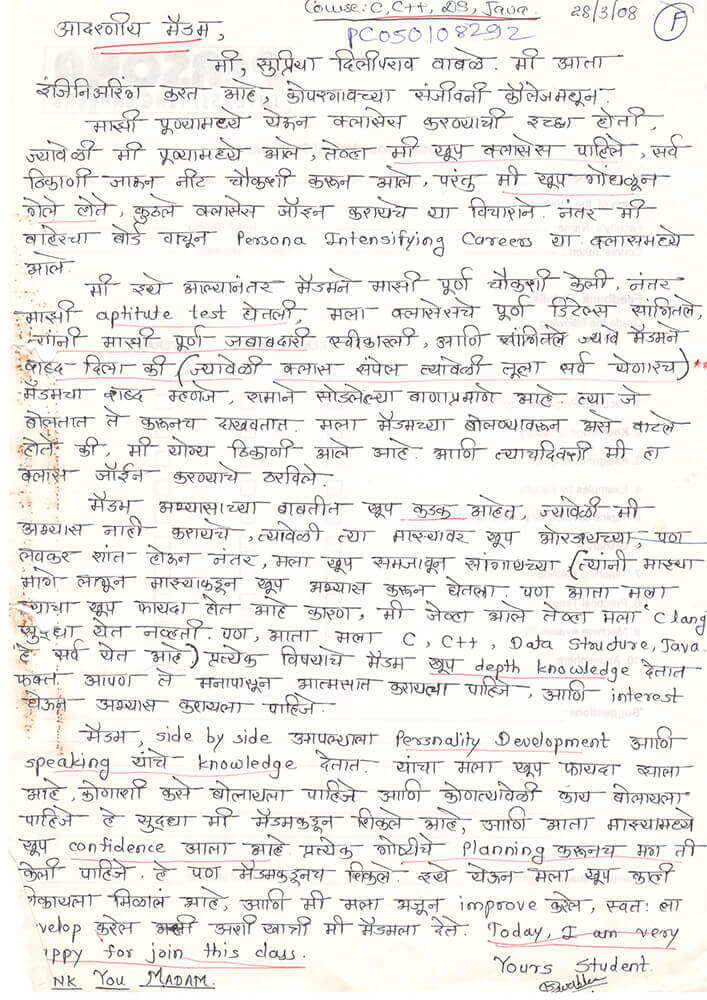 Course: C, C++, DS, Java.
28/3/08
F
आदरणीय मॅडम,
PC050108292
मी, सुप्रिया दिलीपराव वाबळे. मी आता
इंजिनिअरिंग करत आहे, कोपरगावच्या संजीवनी कॉलेजमधून.
माझी पूण्यामध्ये येऊन क्लासेस करण्याची इच्छा होती,
ज्यावेळी मी पूण्यामध्ये आले, तेव्हा मी खूप क्लासेस पाहिले, सर्व
ठिकाणी जाऊन नीट चौकशी करून आले, परंतु मी खूप गोंधळून
गेले होते, कुठले क्लासेस जॉइन करायचे या विचाराने. नंतर मी
बाहेरचा बोर्ड वाचून Persona Intensifying Careers या क्लासमध्ये
आले.
मी इथे आल्यानंतर मॅडमने माझी पूर्ण चौकशी केली, नंतर
माझी aptitute test घेतली, मला क्लासेसचे पूर्ण डिटेल्स सांगितले,
त्यांनी माझी पूर्ण जबाबदारी स्वीकारली, आणि सांगितले ज्यावे मॅडमने
शब्द दिला की (ज्यावेळी क्लास संपेल त्यावेळी तूला सर्व येणारच)
मॅडमचा शब्द म्हणजे, रामाने सोडलेल्या बाणाप्रमाणे आहे. त्या जे
बोलतात ते करूनच दाखवतात. मला मॅडमच्या बोलण्यावरून असे वाटले
होते की, मी योग्य ठिकाणी आले आहे. आणि त्याचदिवशी मी हा
क्लास जॉईन करण्याचे ठरविले.
मॅडम अभ्यासाच्या बाबतीत खूप कडक आहेत, ज्यावेळी मी
अभ्यास नाही करायचे, त्यावेळी त्या माझ्यावर खूप ओरडायच्या, पण
लवकर शांत होऊन नंतर, मला खूप समजावून सांगायच्या (त्यांनी माझ्या
मागे लागून माझ्याकडून खूप अभ्यास करून घेतला. पण आता मला
त्याचा खूप फायदा होत आहे कारण, मी जेव्हा आले तेव्हा मला 'C lang
सुद्धा येत नव्हती. पण, आता मला C, C++, Data Structure, Java
हे सर्व येत आहे) प्रत्येक विषयाचे मॅडम खूप depth knowledge देतात
फक्त. आपण ते मनापासून आत्मसात करायला पाहिजे, आणि interest
घेऊन अभ्यास करायला पाहिजे.
मॅडम, side by side आपल्याला Personality Development आणि
speaking यांचे knowledge देतात. यांचा मला खूप फायदा झाला
आहे, कोणाशी कसे बोलायला पाहिजे आणि कोणत्यावेळी काय बोलायला
पाहिजे हे सुद्धा मी मॅडमकडून शिकले आहे, आणि आता माझ्यामध्ये
खूप confidence आला आहे. प्रत्येक गोष्टीचे Planning करूनच मग ती
केली पाहिजे, हे पण मॅडमकडूनच शिकले. इथे येऊन मला खूप काही
शिकायला मिळालं आहे, आणि मी मला अजून improve करेल, स्वतः ला
velop करेल अशी खात्री मी मॅडमला देते. Today, I am very
appy for join this class.
Yours Student.
NK YOU MADAM.